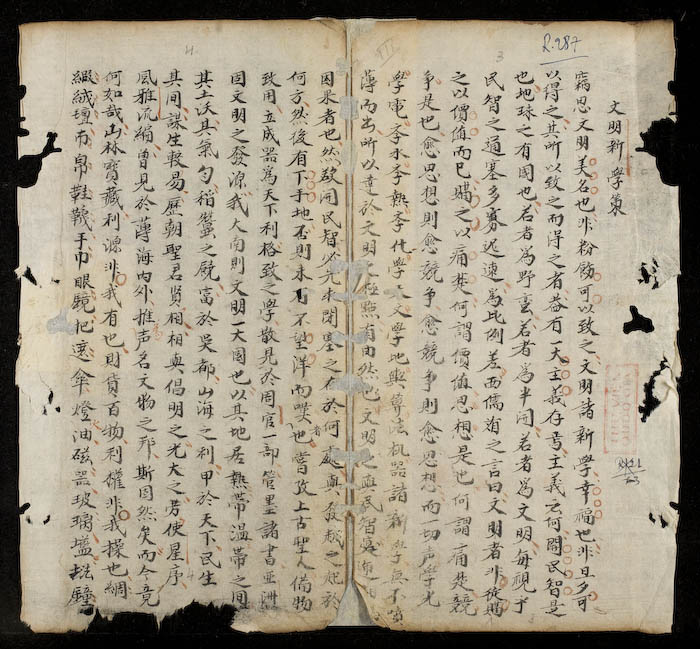 文明新學策
竊思文明美名也非粉飾可以致之文明諸新學幸福也非旦夕可
以得之其所以致之而得之者蓋有一大主義存焉主義云何開民智是
也地球之有國也若者為野蠻若者為半開若者為文明每視乎
民智之通塞多寡遲速為比例差西儒有之言曰文明者非徒購
之以價值而已購之以痛楚何謂價值思想是也何謂痛楚競
爭是也愈思想則愈競爭愈競爭則愈思想而一切声學光
學電學水學熱學化學天文學地輿算法機器諸新學無不噴
薄而出所以達於文明之極點有由然也文明之與民智實
因果者也然欲開民智必先求閉塞之在於何處與發越之起於
何方然後有下手地否則未有不望洋而嘆者也嘗攷上古聖人備物
致用立成器為天下利格致之學散見於周官一部管墨諸書亞洲
固文明之發源我大南則文明一大國也以其地居熱帶溫帶之間
其土沃其氣勻稻蠶之厩富於吳都山海之利甲於天下民生
其間謀生較易歷朝聖君賢相相與倡明之光大之旁使星序
風雅流縟曾見於薄海內外推声名文物之邦斯固然矣而今竟
何如哉山林寶藏利源非我有也則貨百物利權非我操也綢
緞絨壇布帛鞋韈手巾眼鏡把遮傘燈油磁器玻璃鐘
R.287
3
4